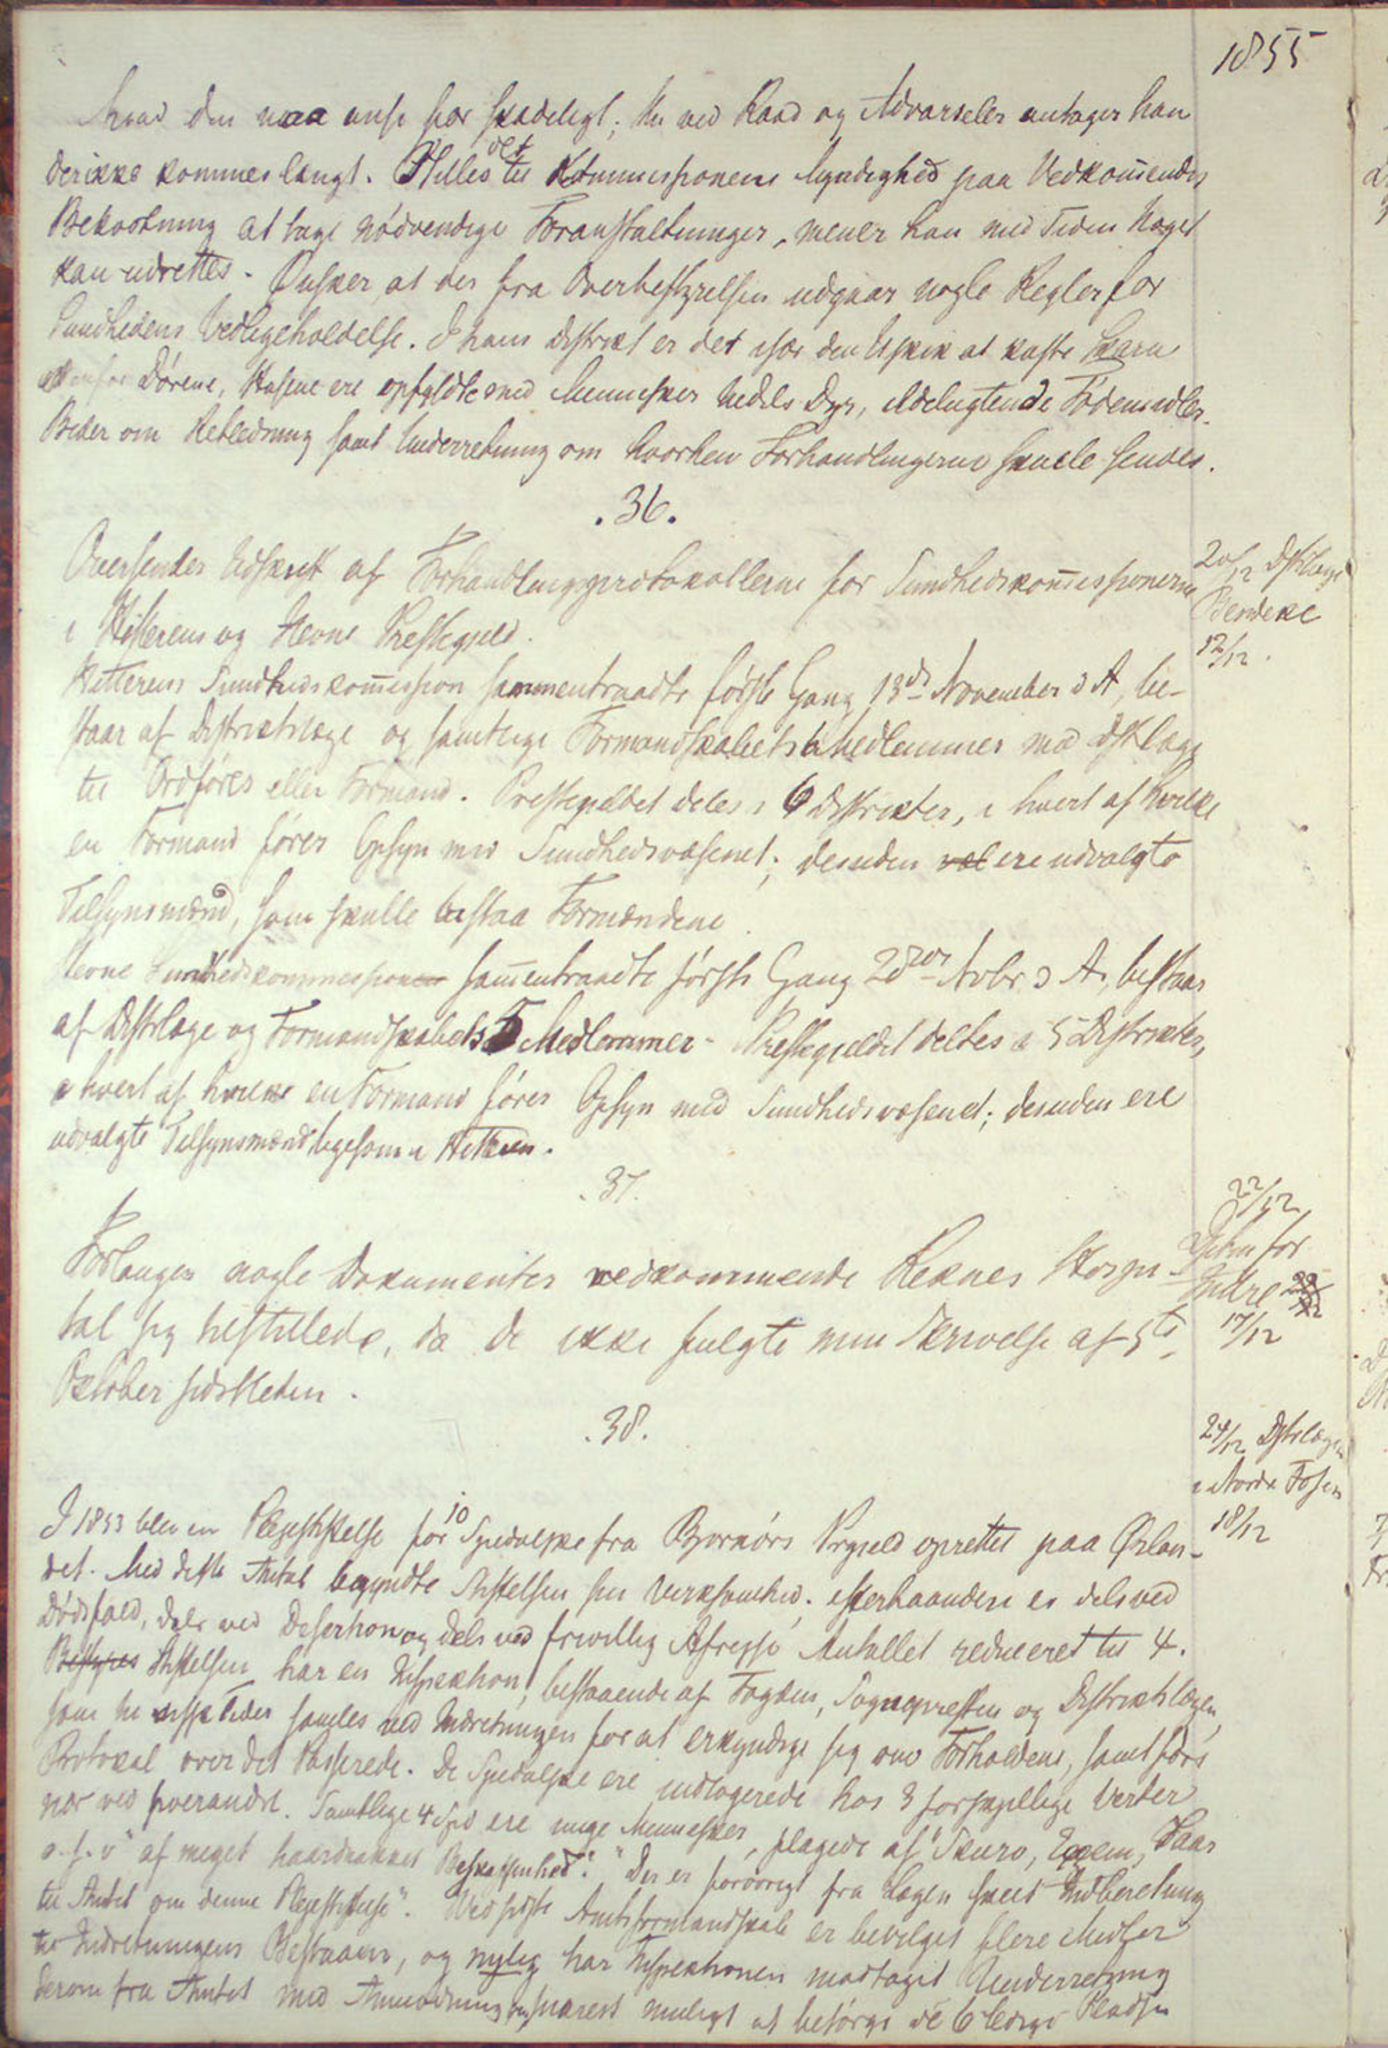 1855
hvad den maa anse for skadeligt; Men ved Raad og Advarseler antager han
der ikke kommes langt. Stilles det til Kommissionens Myndighed paa Vedkommendes
Bekostning at tage nødvendige Foranstaltninger, mener han med Tiden Noget
kan udrettes. Ønsker, at der fra Overbestyrelsen udgaar nogle Regler for
Sundhedens Vedligeholdelse. I hans Distrikt er det især den Uskik at kaste Skarn
udenfor Dørene, Husene ere opfyldte med Mennesker tildels Dyr, ildelugtende Fødemidler.
Beder om Retledning samt Underretning om hvorhen Forhandlingerne skulle sendes.
.36.
Oversender Udskrift af Forhandlingsprotokollerne for Sundhedskommissionerne
i Hitterens og Hevne Prestegjeld.
20/12 Distlæge
Bendeke
12/12.
Hitterens Sundhedskommission sammentraadte første Gang 13de November d A, be-
staar af Distriktslæge og samtlige Formandskabets 6 Medlemmer med Distlæge
til Ordfører eller Formand. Prestegjeldet deles i 6 Distrikter, i hvert af hvilke
en Formand fører Opsyn med Sundhedsvæsenet; desuden ere udvalgte
Tilsynsmænd, som skulle bistaa Formændene.
Hevne Sundhedskommission sammentraadte første Gang 28de Novbr. d A, bestaar
af Distrlæge og Formandskabets 5 Medlemmer. Prestegjeldet deltes i 5 Distrikter,
i hvert af hvilke en Formand fører Opsyn med Sundhedsvæsenet; desuden ere
udvalgte Tilsynsmænd ligesom i Hitteren.
.37.
Forlanger nogle Dokumenter vedkommende Reknes Hospi-
tal sig tilstillede, da de ikke fulgte min Skrivelse af 5te
Oktober sidstleden.
22/12
Dptm for
Indre 22/12
17/12
.38.
24/12 Dstrlægen
i Nordre Fosen
18/12
I 1853 blev en Plejestiftelse for 10 Spedalske fra Bjørnørs Prgjeld oprettet paa Ørlan-
det. Med dette Antal begyndte Stiftelsen sin Virksomhed; efterhaanden er dels ved
Dødsfald, dels ved Desertion og dels ved frivillig Afrejse Antallet reduceret til 4.
Bestyres Stiftelsen har en Inspektion, bestaaende af Fogden, Sognepresten og Distriktslægen,
som til visse Tider samles ved Indretningen for at erkyndige sig om Forholdene, samt føre
Protokol over det Passerede. De Spedalske ere indlogerede hos 3 forskjellige Verter
nær ved hverandre. Samtlige 4 Spd ere unge Mennesker, plagede af "Skurv, Exem, Saar
o. s. v" af meget haardnakket Beskaffenhed." "Der er forøvrigt fra Lægen skeet Indberetning
til Amtet om denne Plejestiftelse". Ved sidste Amtsformandskab er bevilget flere Midler
til Indretningens Bestaaen, og nylig har Inspektionen modtaget Underretning
derom fra Amtet med Anmodning om snarest muligt at besørge de 6 ledige Pladse